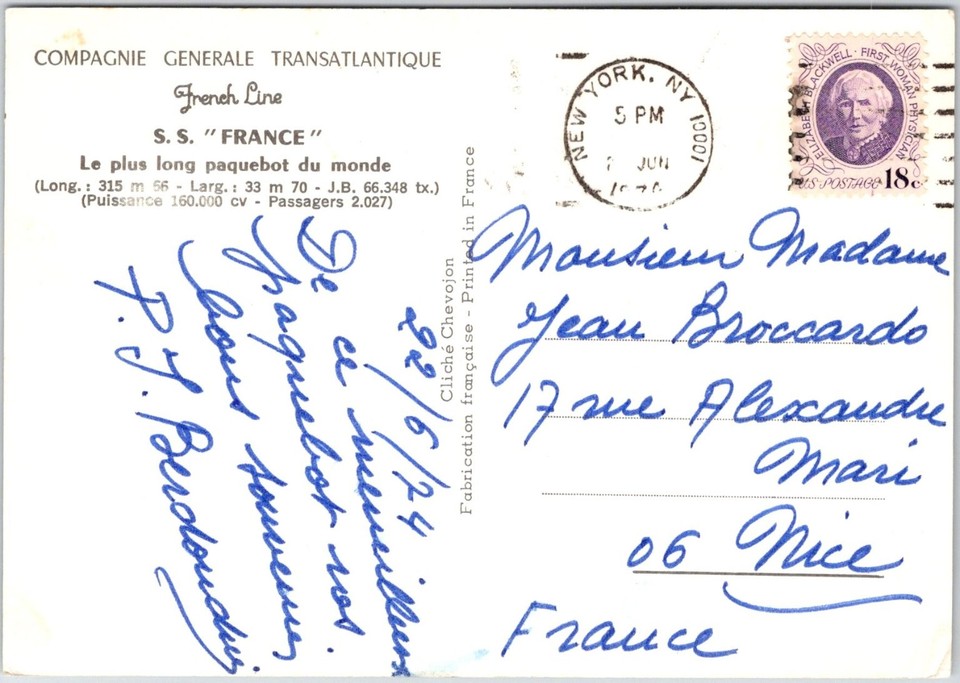 COMPAGNIE GENERALE TRANSATLANTIQUE
French Line
S. S. "FRANCE"
Le plus long paquebot du monde
(Long. : 315 m 66 - Larg. : 33 m 70 - J.B. 66.348 tx.)
(Puissance 160.000 cv - Passagers 2.027)
22/6/74
De ce merveilleux
paquebot nos
bons souvenirs
P. J.
Cliché Chevojon
Fabrication française - Printed in France
NEW YORK, NY 10001
5 PM
JUN
ELIZABETH BLACKWELL · FIRST WOMAN PHYSICIAN
US POSTAGE 18c
Monsieur Madame
Jean Broccardo
17 rue Alexandre
Mari
06 Nice
France